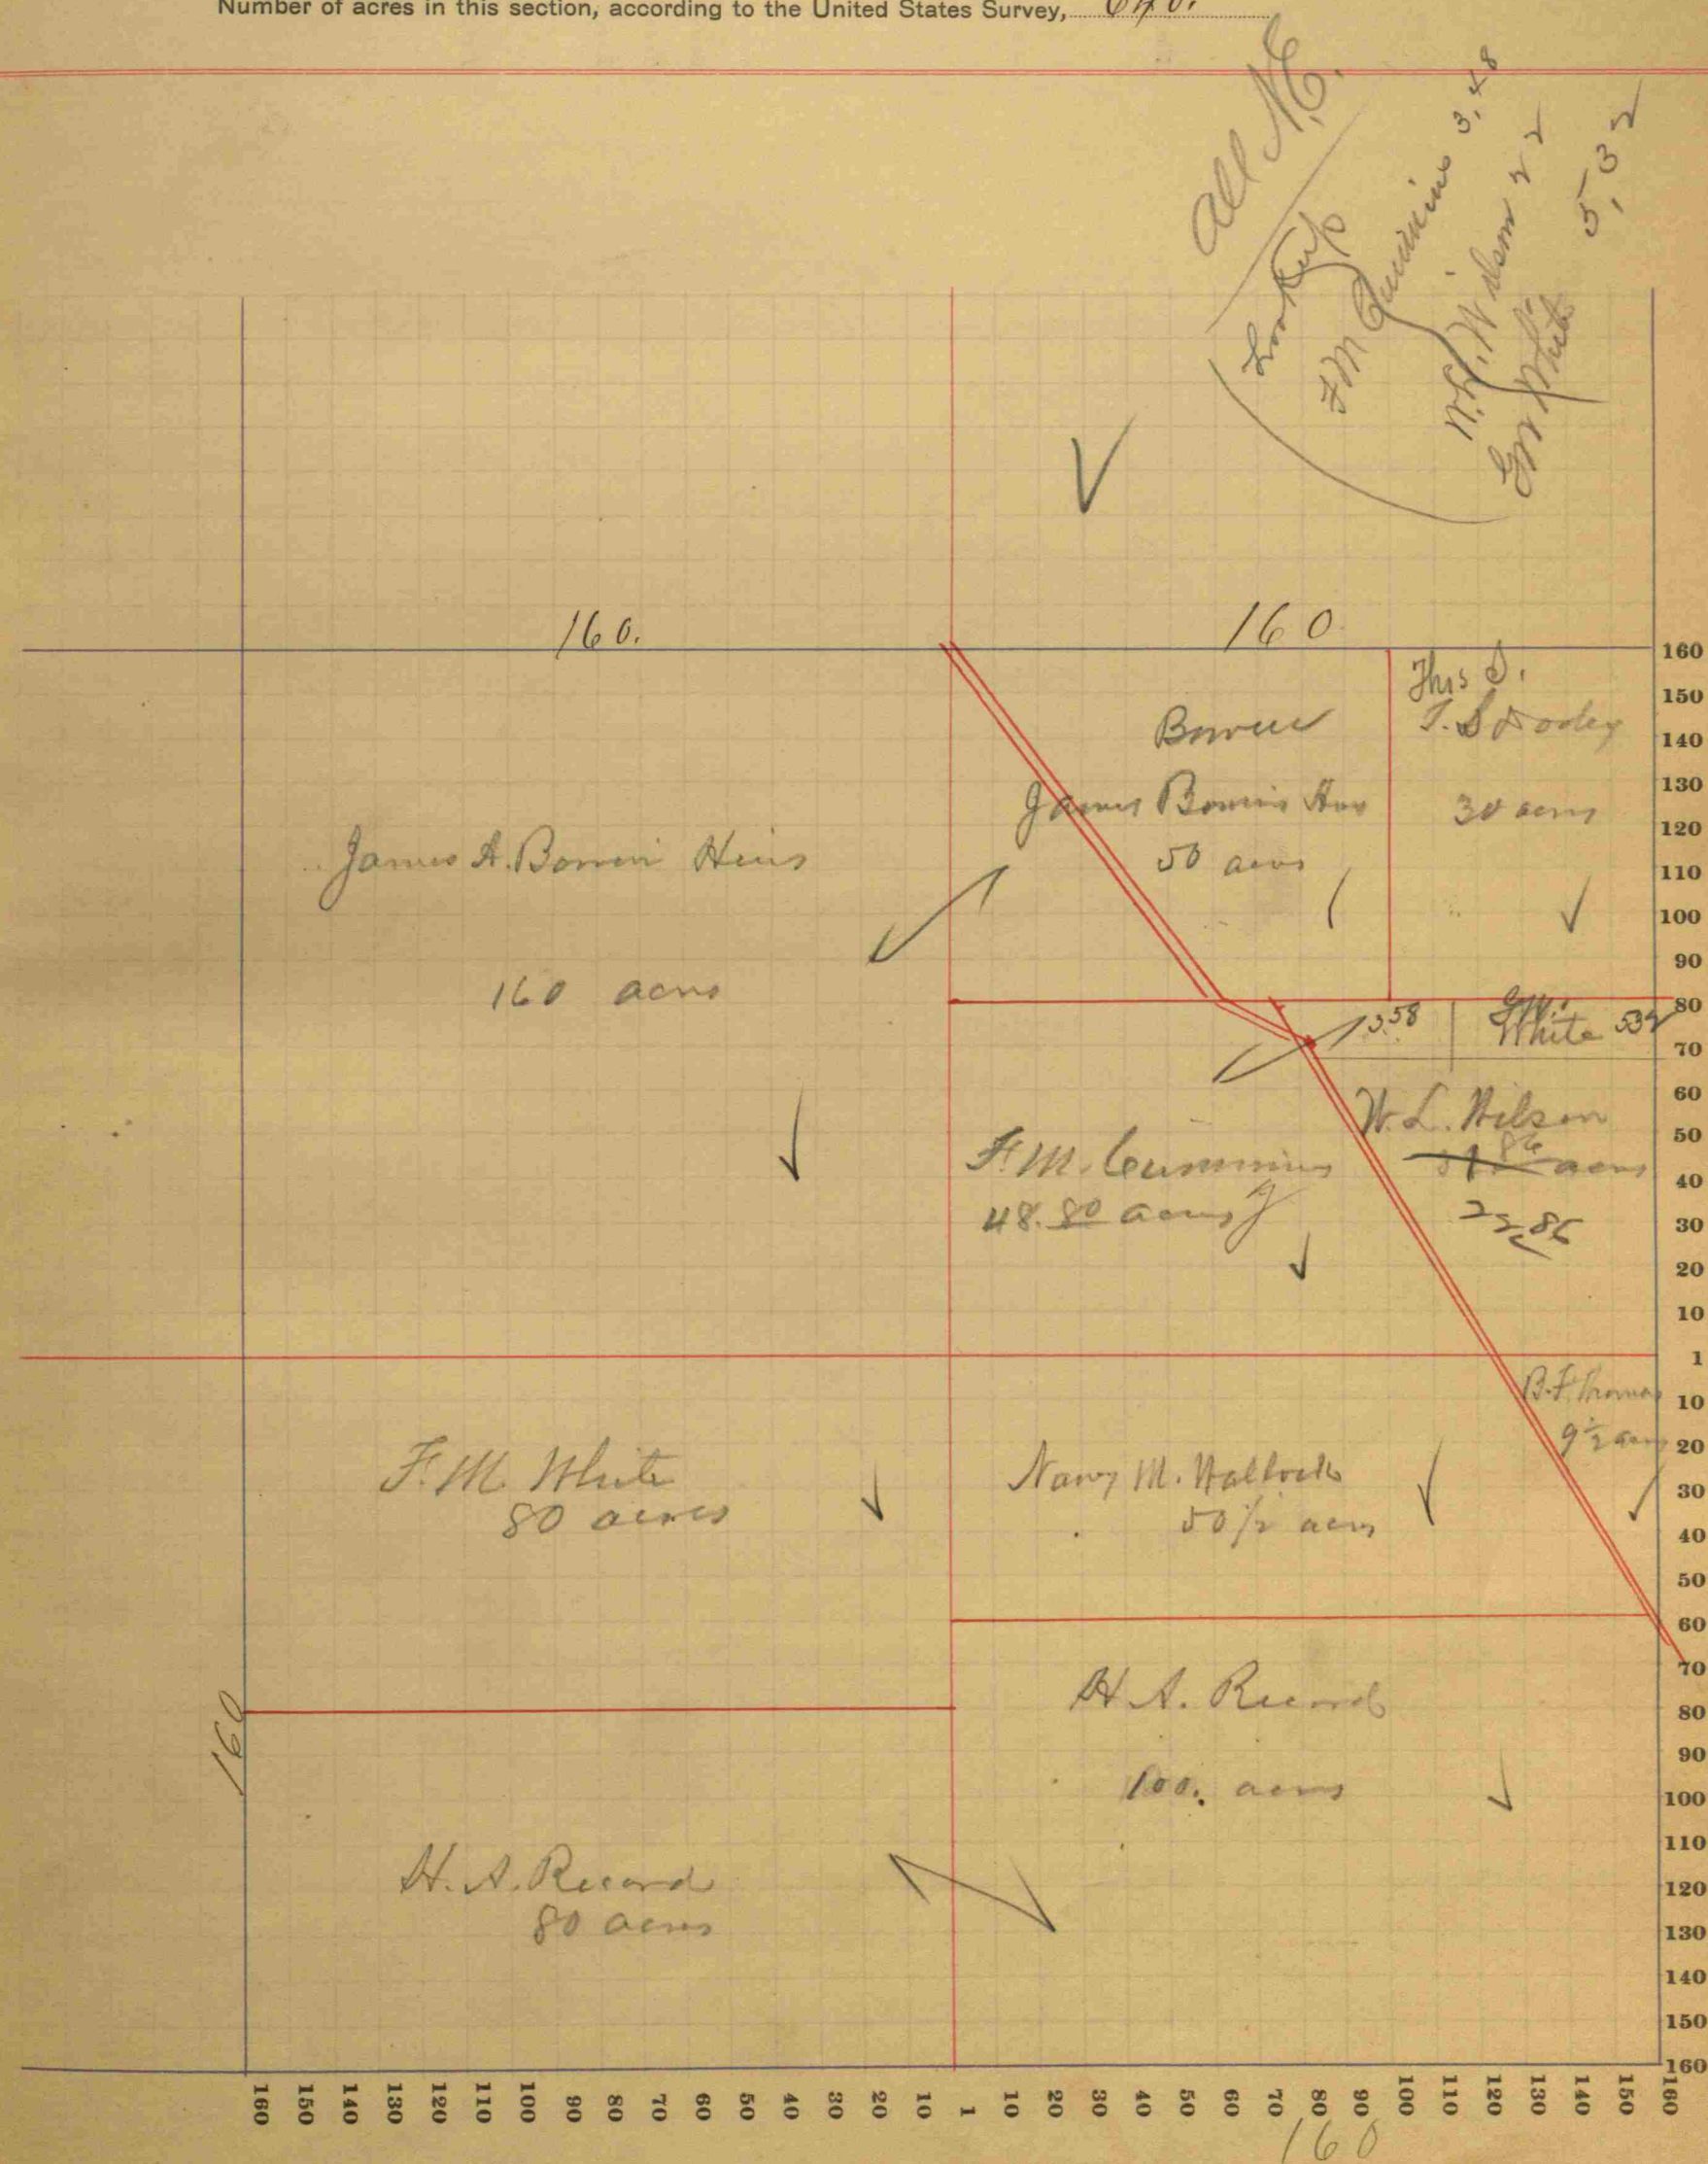 Number of acres in this section, according to the United States Survey, 640.
All N.E.
Look Up
F M Cummins 3,48
W.L. Wilson 22
G W White 5,32
160.
160
This S.
T. S Dooley
30 acres
Bowen
James Bowen Heirs
50 acres
James A. Bowen Heirs
160 acres
3.58
G.W.
White 532
W. L. Wilson
86
acres
22.86
F. M. Cummins
48.80 acres
B. F. Thomas
9 1/2 acres
F. M. White
80 acres
Nancy M. Hallock
50 1/2 acres
H. A. Record
100. acres
H. A. Record
80 acres
160
160
150
140
130
120
110
100
90
80
70
60
50
40
30
20
10
1
10
20
30
40
50
60
70
80
90
100
110
120
130
140
150
160
160 150 140 130 120 110 100 90 80 70 60 50 40 30 20 10 1 10 20 30 40 50 60 70 80 90 100 110 120 130 140 150 160
160